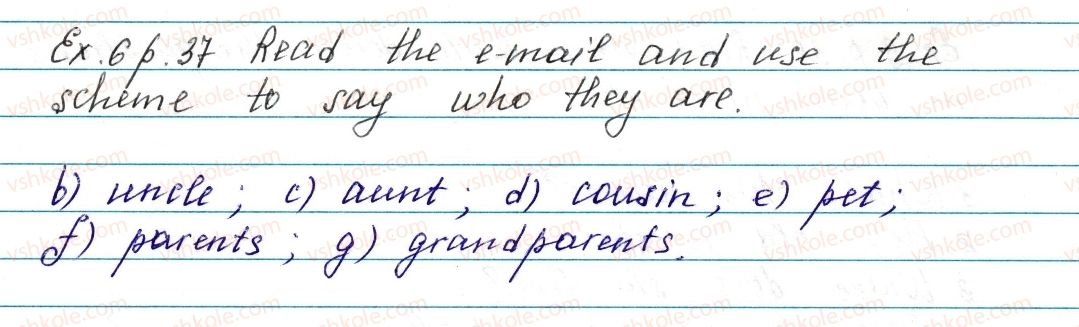 Ex. 6 p. 37 Read the e-mail and use the
scheme to say who they are.
b) uncle; c) aunt; d) cousin; e) pet;
f) parents; g) grandparents.